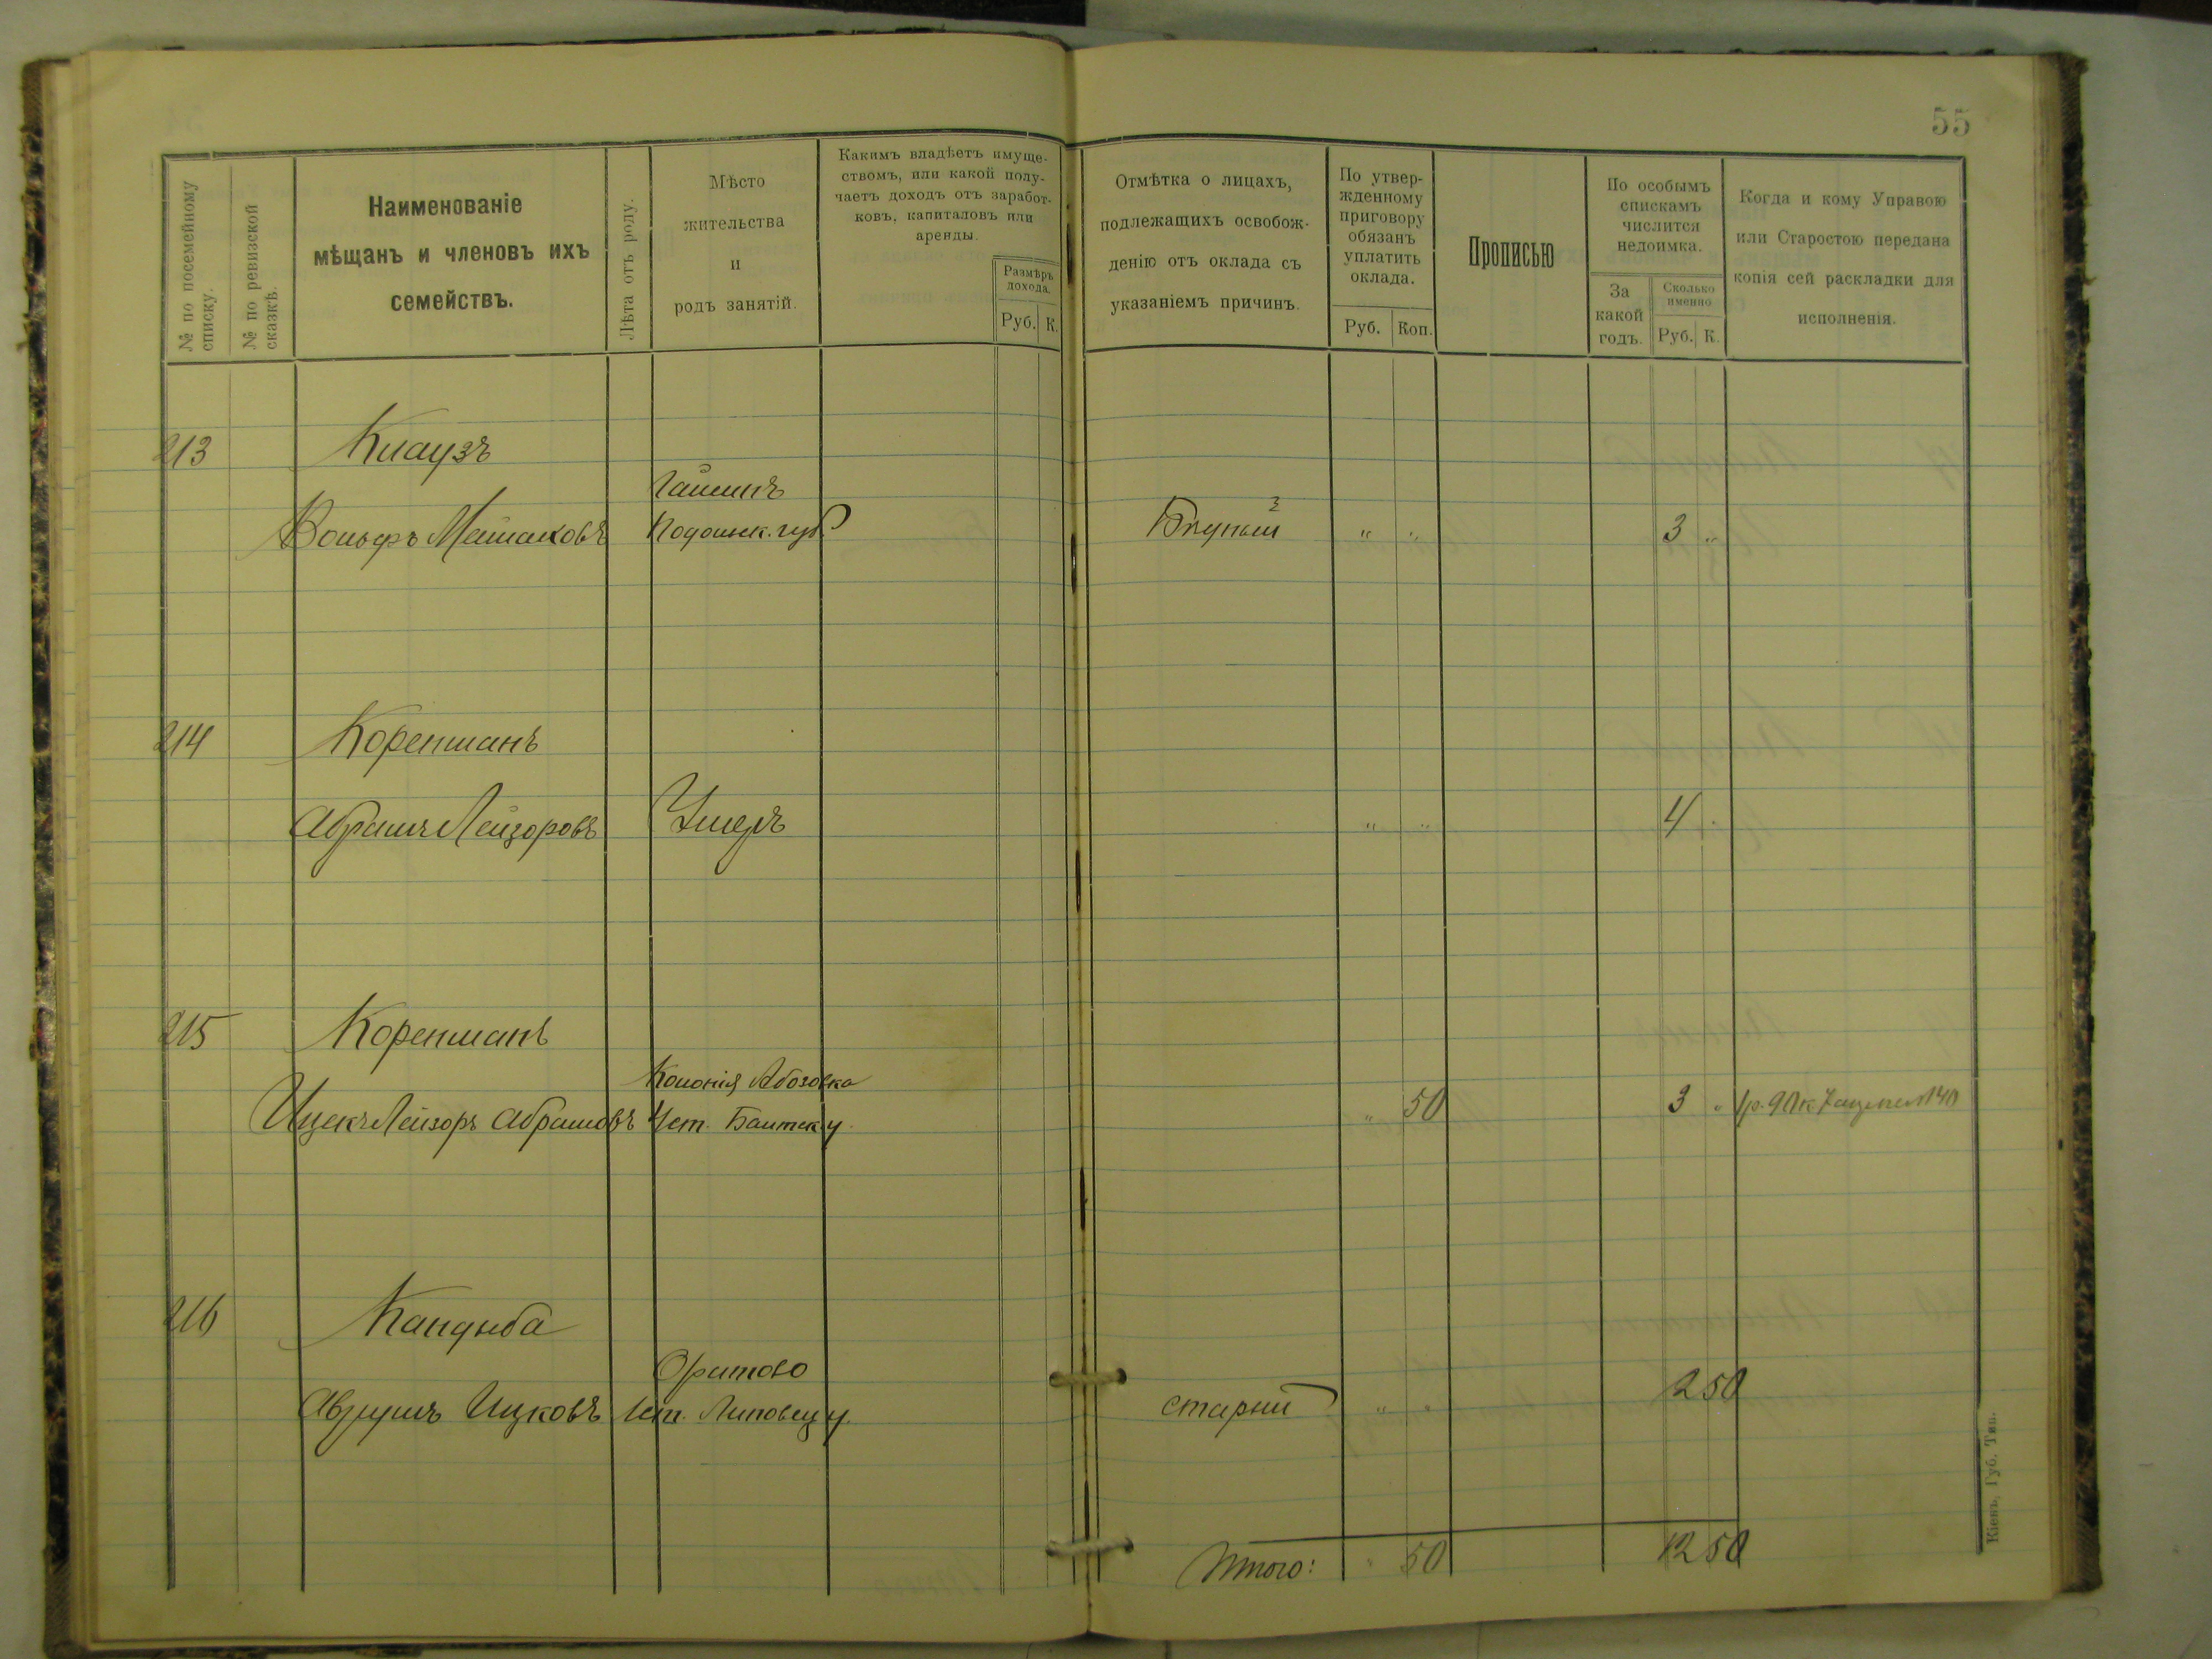 55
№ по посемейному списку.
№ по ревизской сказкѣ.
Наименованіе
мѣщанъ и членовъ ихъ
семействъ.
Лѣта отъ роду.
Мѣсто
жительства
и
родъ занятій.
Какимъ владѣетъ имуще-
ствомъ, или какой полу-
чаетъ доходъ отъ заработ-
ковъ, капиталовъ или
аренды.
Размѣръ
дохода.
Руб. К.
Отмѣтка о лицахъ,
подлежащихъ освобож-
денію отъ оклада съ
указаніемъ причинъ.
По утвер-
жденному
приговору
обязанъ
уплатить
оклада.
Руб. Коп.
Прописью
По особымъ
спискамъ
числится
недоимка.
За
какой
годъ.
Сколько
именно
Руб. К.
Когда и кому Управою
или Старостою передана
копія сей раскладки для
исполненія.
213 Кнаузъ
Гайсинъ
Вольфъ Подольск. губ. " " 3 "
214 Коренманъ
Абрамъ Лейзоровъ Умеръ " " 4
215 Коренманъ
Колонія Абозовка
Ицекъ Лейзоръ Абрамовъ Балтск. у. " 50 3 " 1р. 90к
216 Кандыба
Оратово
Ицковъ Липовец. у. старый " " 2 50
Итого: " 50 12 50
Кіевъ, Губ. Тип.